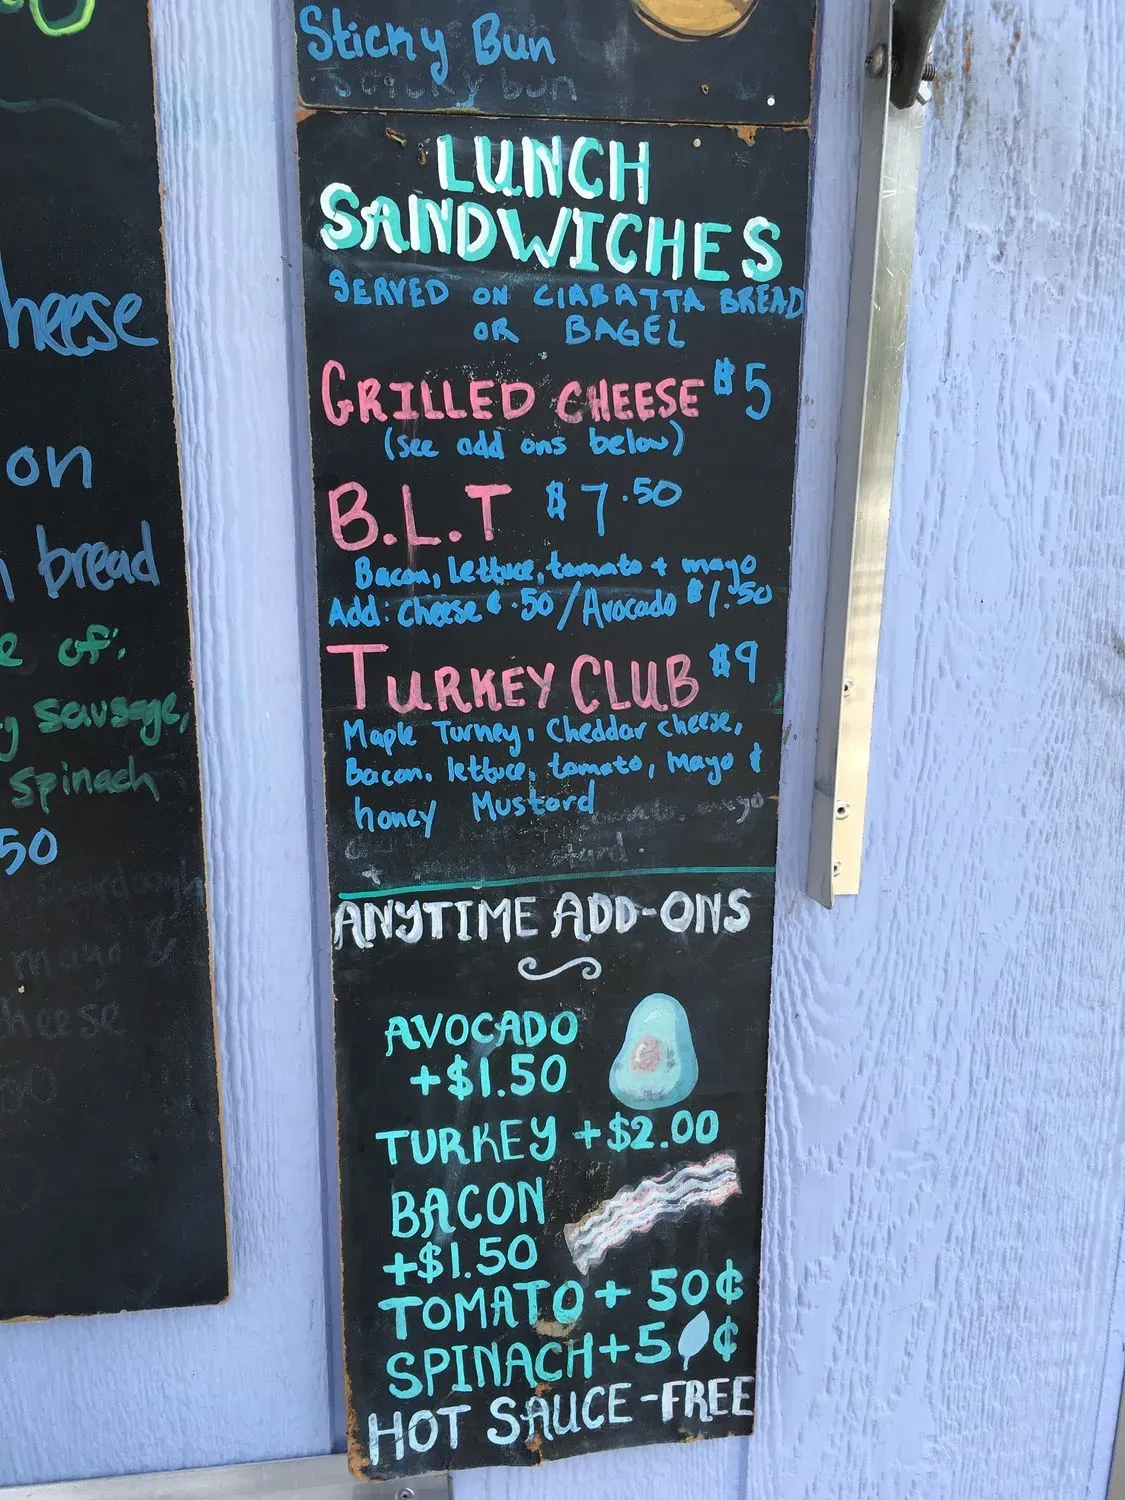 Sticky Bun
LUNCH
SANDWICHES
SERVED ON CIABATTA BREAD
OR BAGEL
GRILLED CHEESE $5
(see add ons below)
B.L.T $7.50
Bacon, lettuce, tomato + mayo
Add: Cheese ¢.50/Avocado $1.50
TURKEY CLUB $9
Maple Turney, Cheddar cheese,
Bacon, lettuce, tomato, Mayo &
honey Mustard
ANYTIME ADD-ONS
AVOCADO
+$1.50
TURKEY +$2.00
BACON
+$1.50
TOMATO + 50¢
SPINACH+50¢
HOT SAUCE-FREE
heese
on
bread
of:
sausage,
spinach
50
mayo &
heese